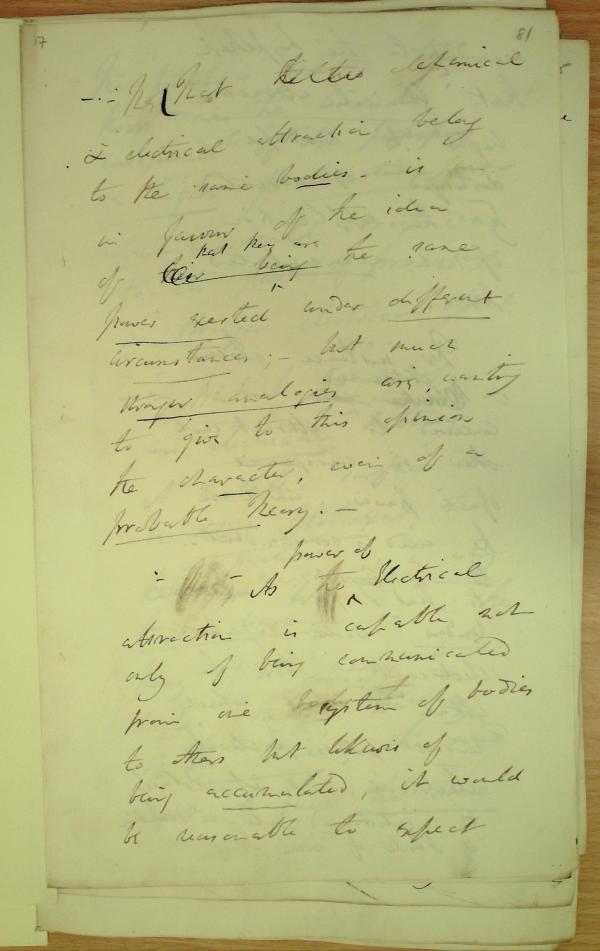 17 81
That chemical
& electrical attraction belong
to the same bodies - is
in favour of the idea
that they are
of their being the same
power exerted under different
circumstances; - but much
stronger analogies are wanting
to give to this opinion
the character, even of a
probable theory. -
power of
As the Electrical
attraction is capable not
only of being communicated
from one system of bodies
to others but likewise of
being accumulated, it would
be reasonable to expect